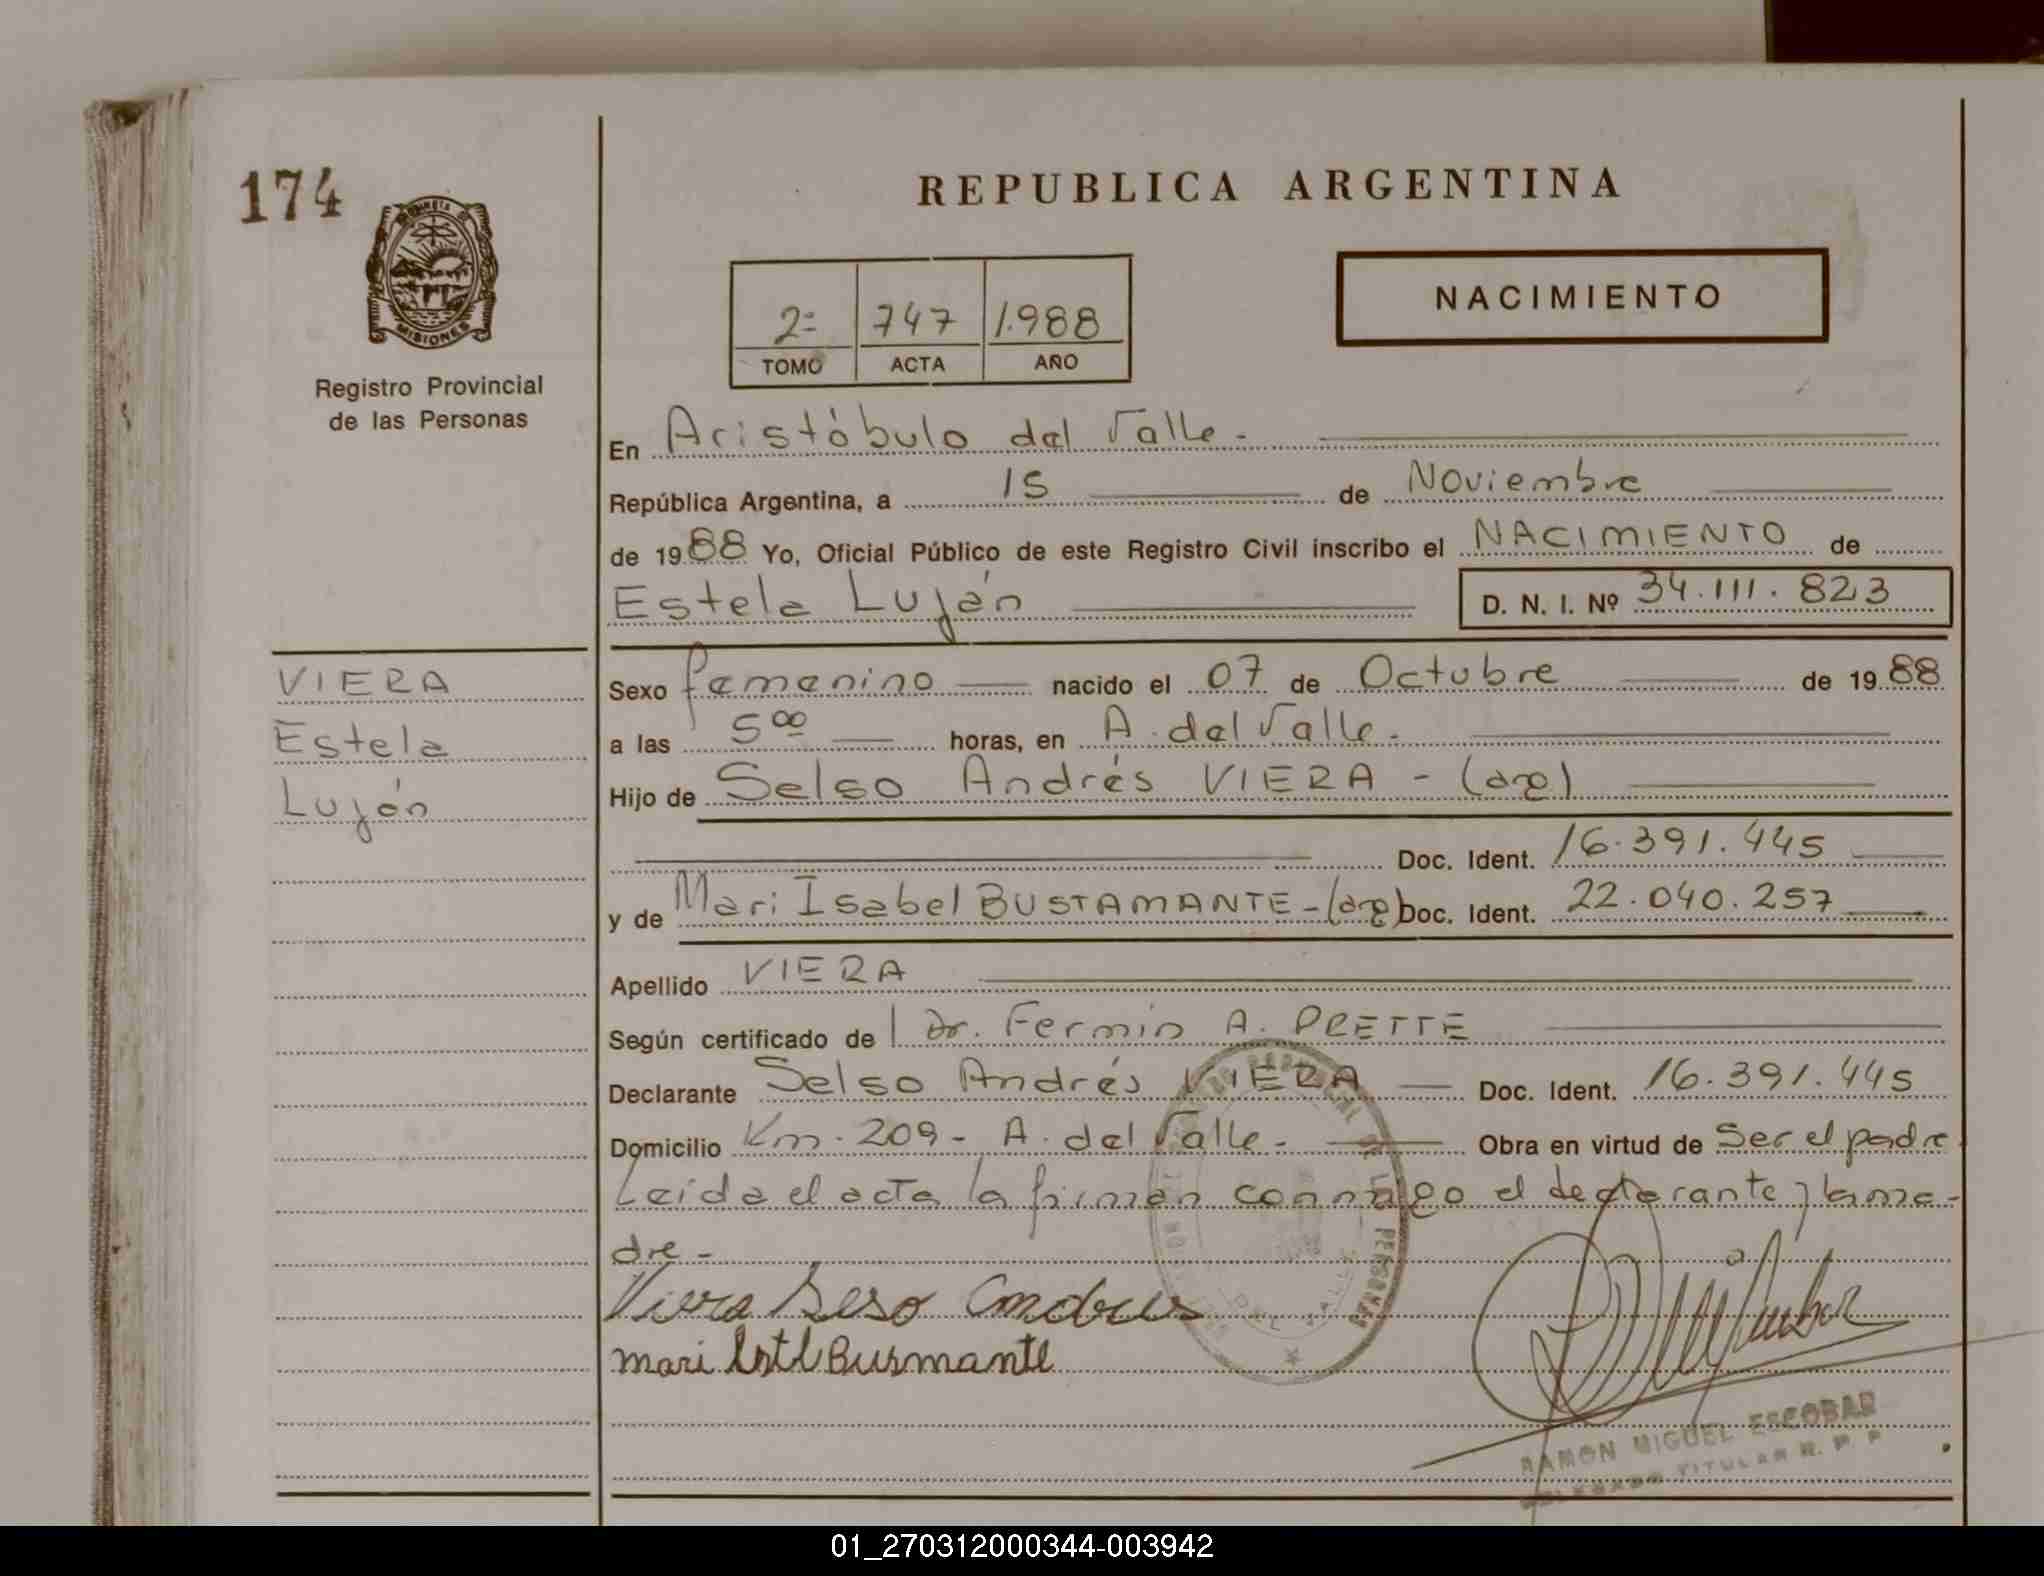 174
REPUBLICA ARGENTINA
NACIMIENTO
2º 747 1.988
TOMO ACTA AÑO
MISIONES
Registro Provincial
de las Personas
En Aristóbulo del Valle -
República Argentina, a 15 de Noviembre
de 1988 Yo, Oficial Público de este Registro Civil inscribo el NACIMIENTO de
Estela Luján D. N. I. Nº 34.111.823
VIERA
Estela
Luján
Sexo femenino nacido el 07 de Octubre de 1988
a las 5 00 horas, en A. del Valle -
Hijo de Selso Andrés VIERA - (arg)
Doc. Ident. 16.391.445
y de Mari Isabel BUSTAMANTE - (arg) Doc. Ident. 22.040.257
Apellido VIERA
Según certificado de Dr. Fermín A. PRETTE
Declarante Selso Andrés VIERA Doc. Ident. 16.391.445
Domicilio Km. 209 - A. del Valle - Obra en virtud de Ser el padre
Leída el acta la firman conmigo el declarante y la ma-
dre -
Viera Seso
mari Busmante
RAMON MIGUEL ESCOBAR
TITULAR R. P. P.
01_270312000344-003942